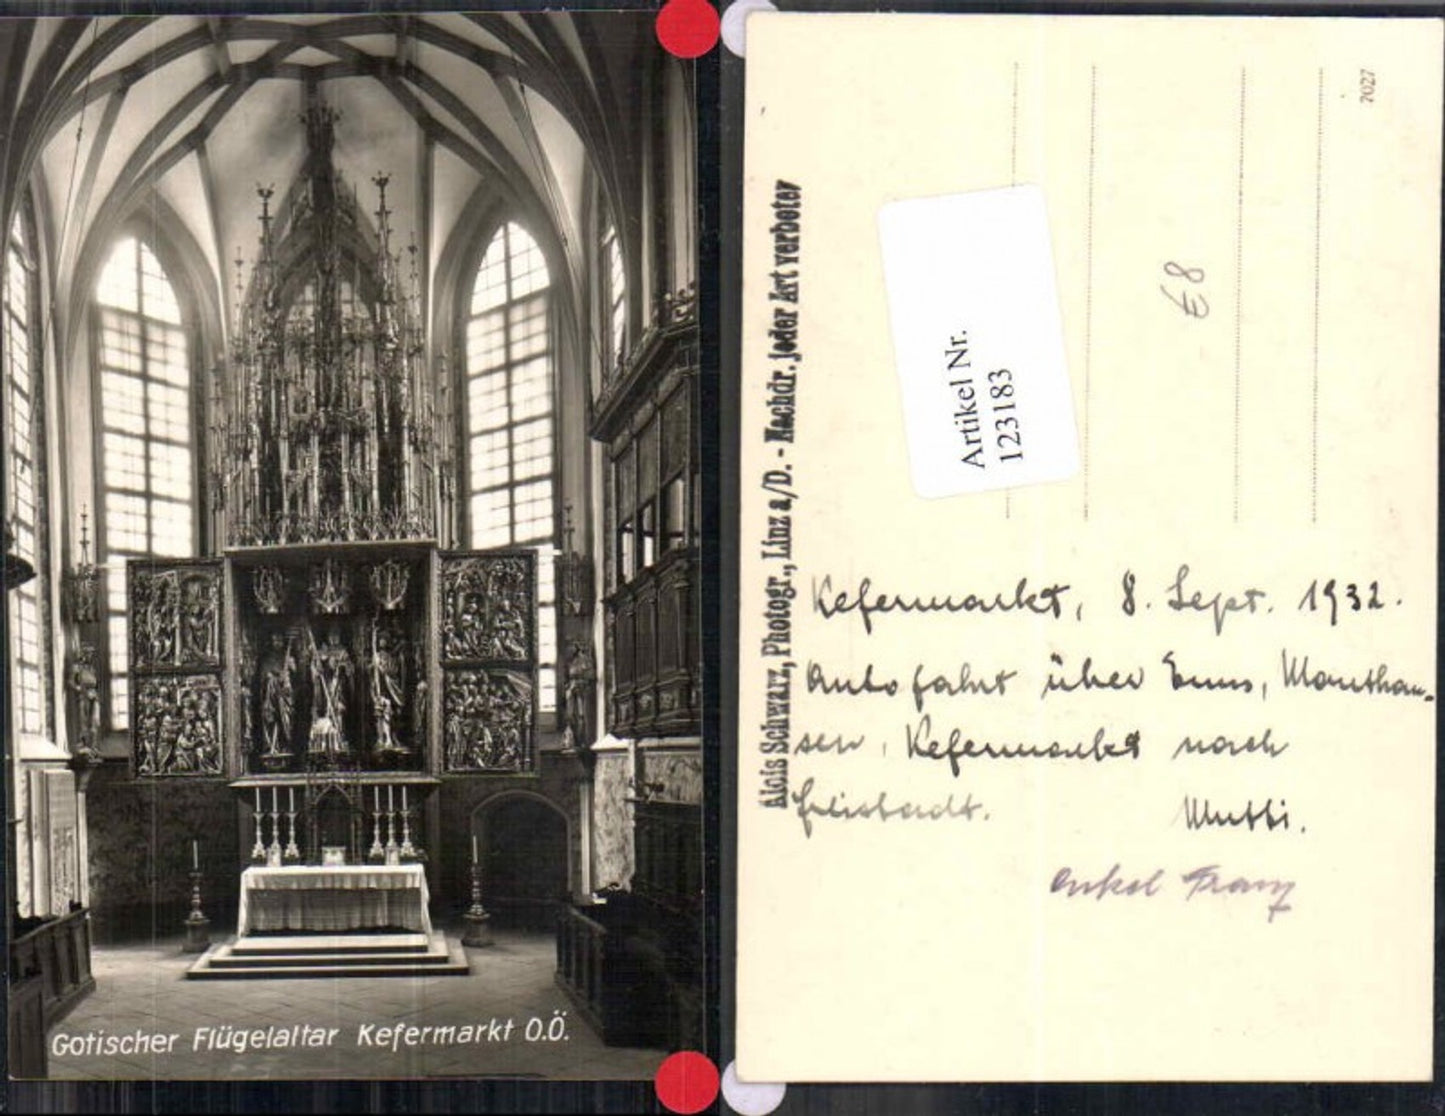 Gotischer Flügelaltar Kefermarkt O.Ö.
Alois Schwarz, Photogr., Linz a/D. - Nachdr. jeder Art verboten
Artikel Nr.
123183
7027
€8
Kefermarkt, 8. Sept. 1932.
Autofahrt über Enns, Mauthau-
sen, Kefermarkt nach
Freistadt. Mutti.
Onkel Franz